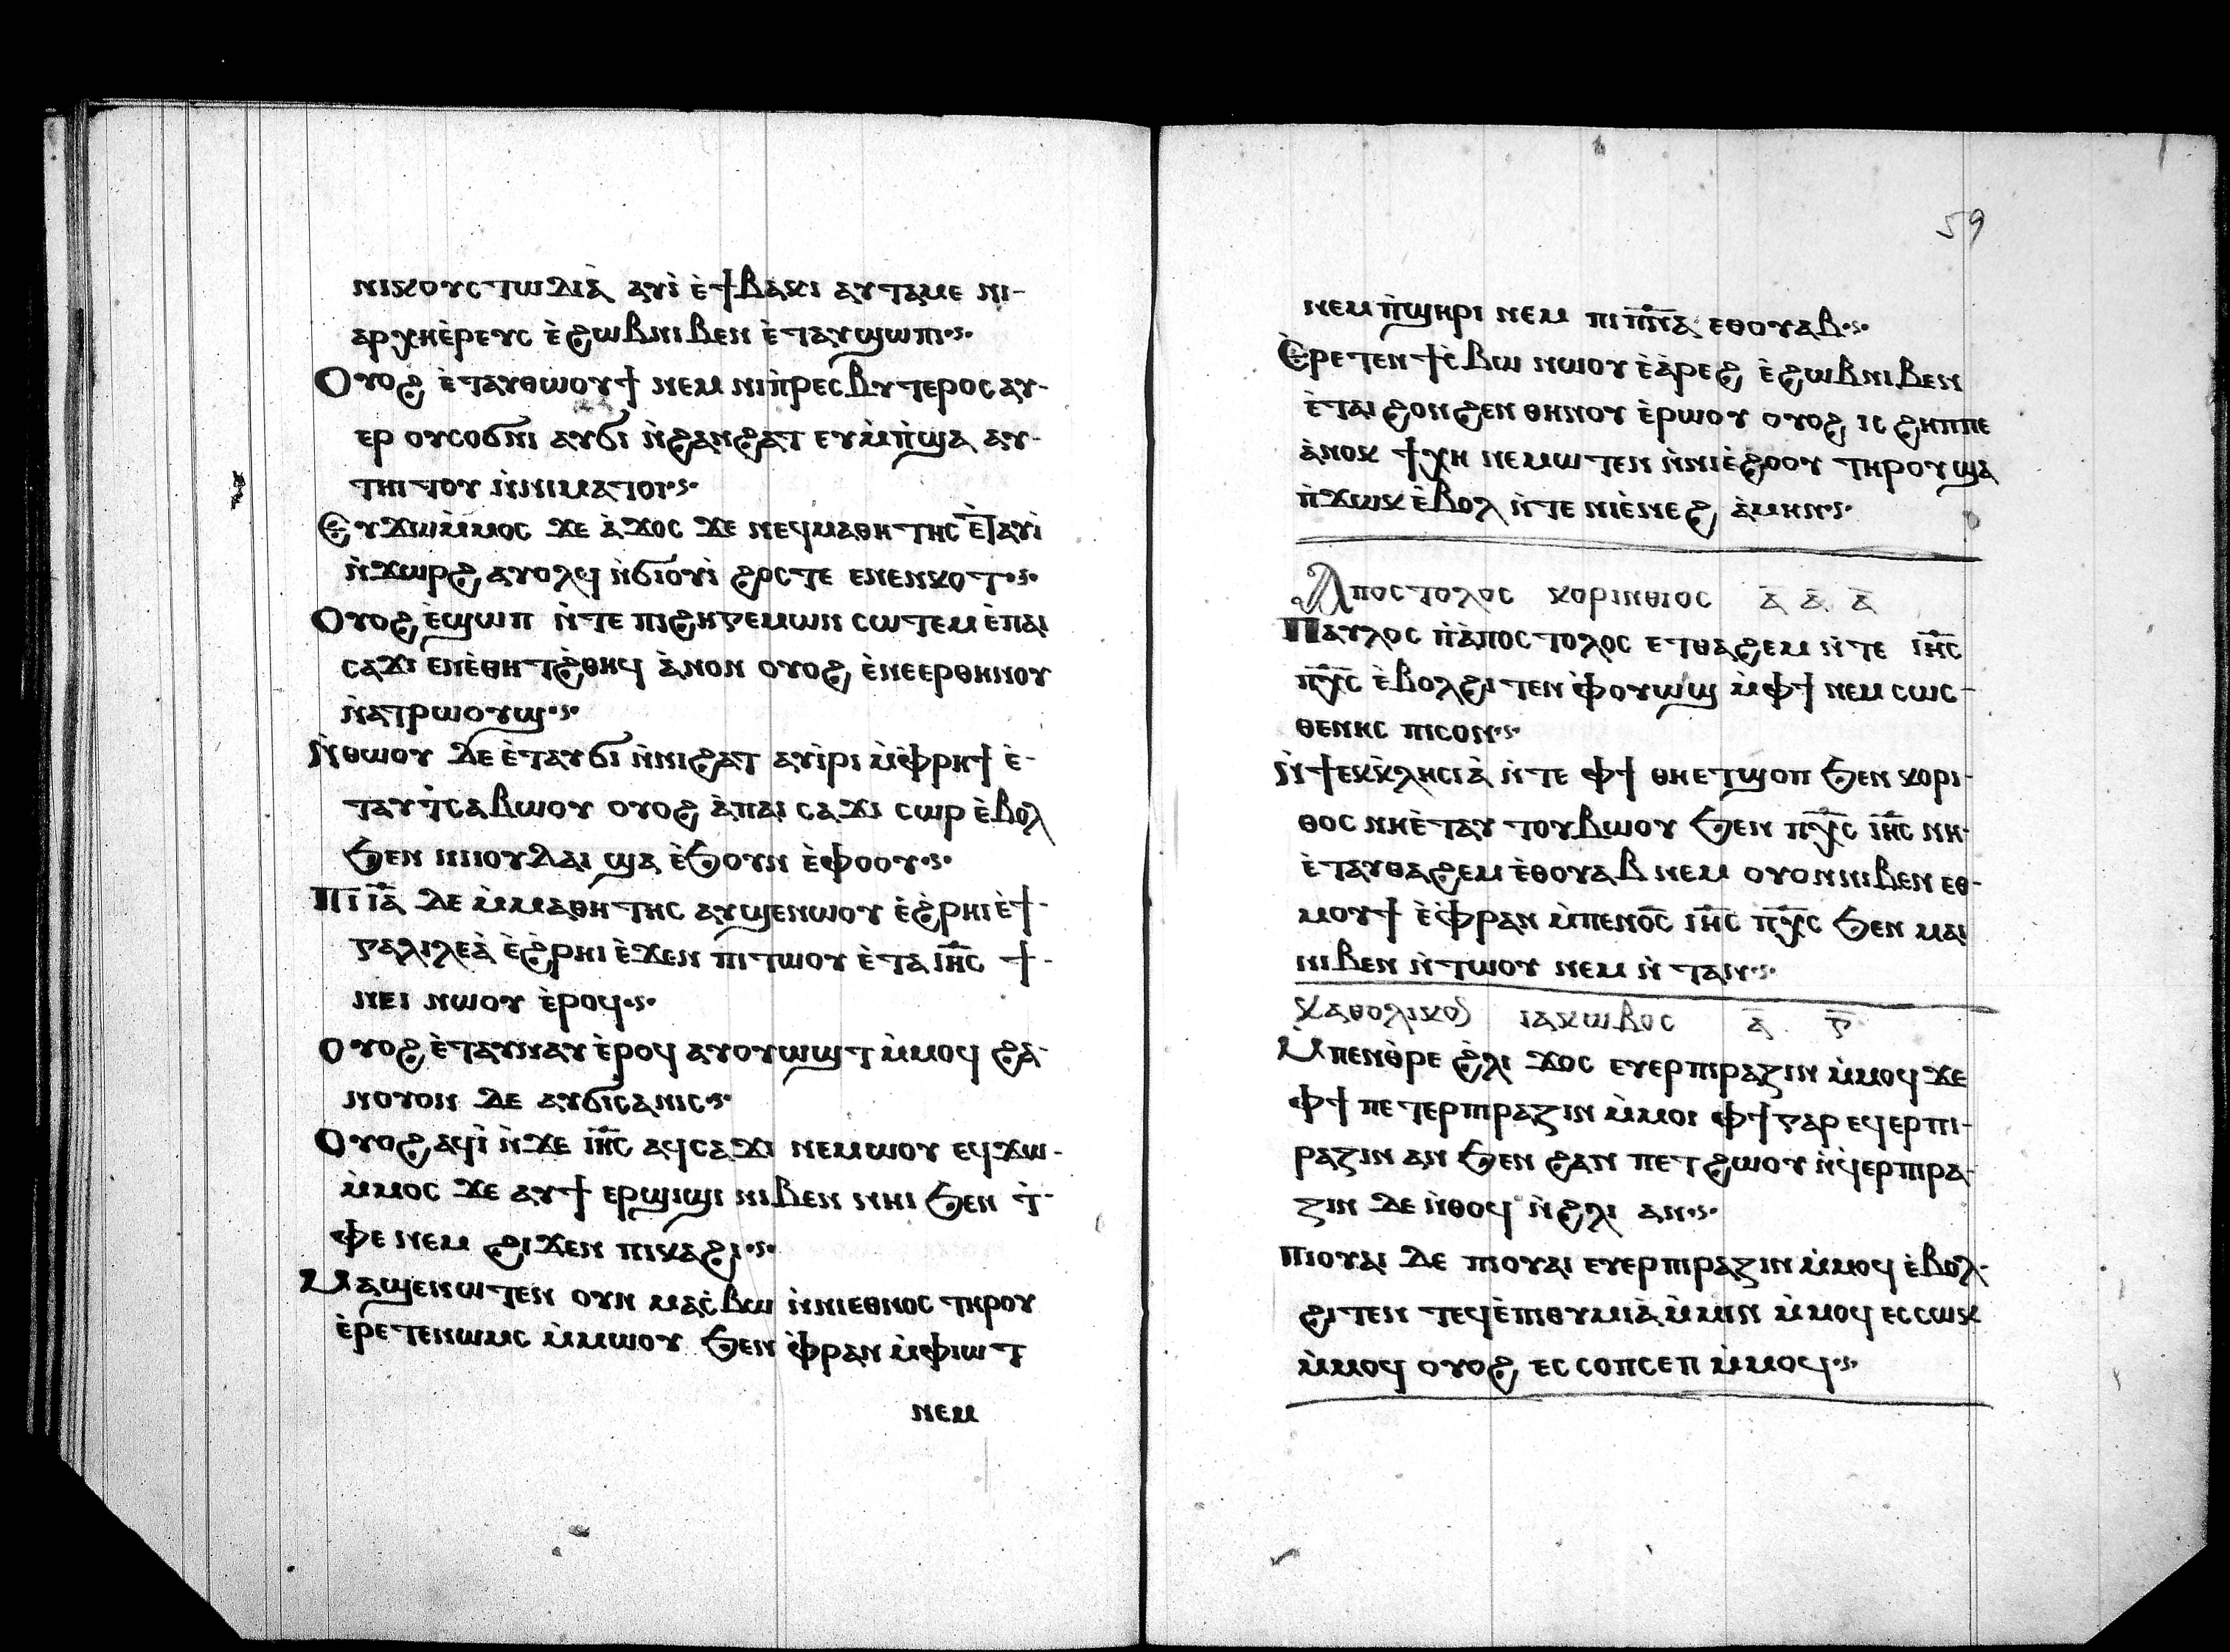 ⲛⲓⲕⲟⲩⲥⲧⲱⲇⲓⲁ̀ ⲁⲩⲓ̀ ⲉ̀ϯⲃⲁⲕⲓ ⲁⲩⲧⲁⲙⲉ ⲛⲓ-
ⲁⲣⲭⲏⲉ̀ⲣⲉⲩⲥ ⲉ̀ϩⲱⲃⲛⲓⲃⲉⲛ ⲉ̀ⲧⲁⲩϣⲱⲡⲓ·ⲋ·
Ⲟⲩⲟϩ ⲉ̀ⲧⲁⲩⲑⲱⲟⲩϯ ⲛⲉⲙ ⲛⲓⲡ̀ⲣⲉⲥⲃⲩⲧⲉⲣⲟⲥ ⲁⲩ-
ⲉⲣ ⲟⲩⲥⲟϭⲛⲓ ⲁⲩϭⲓ ⲛ̀ϩⲁⲛϩⲁⲧ ⲉⲩⲙ̀ⲡ̀ϣⲁ ⲁⲩ-
ⲧⲏⲓⲧⲟⲩ ⲛ̀ⲛⲓⲙⲁⲧⲟⲓ·ⲋ·
Ⲉⲩϫⲱⲙ̀ⲙⲟⲥ ϫⲉ ⲁ̀ϫⲟⲥ ϫⲉ ⲛⲉϥⲙⲁⲑⲏⲧⲏⲥ ⲉ̀ⲧⲁⲩⲓ̀
ⲛ̀ϫⲱⲣϩ ⲁⲩⲟⲗϥ ⲛ̀ϭⲓⲟⲩⲓ̀ ϩⲟⲥⲧⲉ ⲉⲛⲉⲛⲕⲟⲧ·ⲋ·
Ⲟⲩⲟϩ ⲉ̀ϣⲱⲡ ⲛ̀ⲧⲉ ⲡⲓϩⲏⲅⲉⲙⲱⲛ ⲥⲱⲧⲉⲙ ⲉ̀ⲡⲁⲓ
ⲥⲁϫⲓ ⲉⲛⲉ̀ⲑⲏⲧϩ̀ⲑⲏϥ ⲁ̀ⲛⲟⲛ ⲟⲩⲟϩ ⲉ̀ⲛⲉⲉⲣⲑⲏⲛⲟⲩ
ⲛ̀ⲁⲧⲣⲱⲟⲩϣ·ⲋ·
Ⲛ̀ⲑⲱⲟⲩ ⲇⲉ ⲉ̀ⲧⲁⲩϭⲓ ⲛ̀ⲛⲓϩⲁⲧ ⲁⲩⲓ̀ⲣⲓ ⲙ̀ⲫ̀ⲣⲏϯ ⲉ̀-
ⲧⲁⲩⲧ̀ⲥⲁⲃⲱⲟⲩ ⲟⲩⲟϩ ⲁ̀ⲡⲁⲓ ⲥⲁϫⲓ ⲥⲱⲣ ⲉ̀ⲃⲟⲗ
ϧⲉⲛ ⲛⲓⲓⲟⲩⲇⲁⲓ ϣⲁ ⲉ̀ϧⲟⲩⲛ ⲉ̀ⲫⲟⲟⲩ·ⲋ·
Ⲡⲓⲓ̅ⲁ̅ ⲇⲉ ⲙ̀ⲙⲁⲑⲏⲧⲏⲥ ⲁⲩϣⲉⲛⲱⲟⲩ ⲉ̀ϩ̀ⲣⲏⲓ ⲉ̀ϯ-
ⲅⲁⲗⲓⲗⲉⲁ̀ ⲉ̀ϩ̀ⲣⲏⲓ ⲉ̀ϫⲉⲛ ⲡⲓⲧⲱⲟⲩ ⲉ̀ⲧⲁ ⲓⲏ̅ⲥ̅ ϯ-
ⲙⲉⲓ ⲛⲱⲟⲩ ⲉ̀ⲣⲟϥ·ⲋ·
Ⲟⲩⲟϩ ⲉ̀ⲧⲁⲩⲛⲁⲩ ⲉ̀ⲣⲟϥ ⲁⲩⲟⲩⲱϣⲧ ⲙ̀ⲙⲟϥ ϩⲁ-
ⲛⲟⲩⲟⲛ ⲇⲉ ⲁⲩϭⲓⲥⲁⲛⲓⲥ·ⲋ·
Ⲟⲩⲟϩ ⲁϥⲓ̀ ⲛ̀ϫⲉ ⲓⲏ̅ⲥ̅ ⲁϥⲥⲁϫⲓ ⲛⲉⲙⲱⲟⲩ ⲉϥϫⲱ-
ⲙ̀ⲙⲟⲥ ϫⲉ ⲁⲩϯ ⲉⲣϣⲓϣⲓ ⲛⲓⲃⲉⲛ ⲛⲏⲓ ϧⲉⲛ ⲧ̀-
ⲫⲉ ⲛⲉⲙ ϩⲓϫⲉⲛ ⲡⲓⲕⲁϩⲓ·ⲋ·
Ⲙⲁϣⲉⲛⲱⲧⲉⲛ ⲟⲩⲛ ⲙⲁⲥ̀ⲃⲱ ⲛ̀ⲛⲓⲉⲑⲛⲟⲥ ⲧⲏⲣⲟⲩ
ⲉ̀ⲣⲉⲧⲉⲛⲱⲙⲥ ⲙ̀ⲙⲱⲟⲩ ϧⲉⲛ ⲫ̀ⲣⲁⲛ ⲙ̀ⲫⲓⲱⲧ
ⲛⲉⲙ
59
ⲛⲉⲙ ⲡ̀ϣⲏⲣⲓ ⲛⲉⲙ ⲡⲓⲡ̅ⲛ̅ⲁ̅ ⲉⲑⲟⲩⲁⲃ·ⲋ·
Ⲉ̀ⲣⲉⲧⲉⲛϯⲥ̀ⲃⲱ ⲛⲱⲟⲩ ⲉ̀ⲁ̀ⲣⲉϩ ⲉ̀ϩⲱⲃⲛⲓⲃⲉⲛ
ⲉ̀ⲧⲁⲓ ϩⲟⲛϩⲉⲛ ⲑⲏⲛⲟⲩ ⲉ̀ⲣⲱⲟⲩ ⲟⲩⲟϩ ⲓⲥ ϩⲏⲡⲡⲉ
ⲁ̀ⲛⲟⲕ ϯⲭⲏ ⲛⲉⲙⲱⲧⲉⲛ ⲛ̀ⲛⲓⲉ̀ϩⲟⲟⲩ ⲧⲏⲣⲟⲩ ϣⲁ
ⲡ̀ϫⲱⲕ ⲉ̀ⲃⲟⲗ ⲛ̀ⲧⲉ ⲛⲓⲉ̀ⲛⲉϩ ⲁ̀ⲙⲏⲛ·ⲋ·
Ⲁⲡⲟⲥⲧⲟⲗⲟⲥ ⲕⲟⲣⲓⲛⲑⲓⲟⲥ ⲁ̅ ⲁ̅ ⲁ̅
Ⲡⲁⲩⲗⲟⲥ ⲡ̀ⲁ̀ⲡⲟⲥⲧⲟⲗⲟⲥ ⲉⲧⲑⲁϩⲉⲙ ⲛ̀ⲧⲉ ⲓⲏ̅ⲥ̅
ⲡⲭ̅ⲥ̅ ⲉ̀ⲃⲟⲗϩⲓⲧⲉⲛ ⲫ̀ⲟⲩⲱϣ ⲙ̀ⲫϯ ⲛⲉⲙ ⲥⲱⲥ-
ⲑⲉⲛⲏⲥ ⲡⲓⲥⲟⲛ·ⲋ·
Ⲛ̀ϯⲉⲕⲕ̀ⲗⲏⲥⲓⲁ̀ ⲛ̀ⲧⲉ ⲫϯ ⲑⲏⲉⲧϣⲟⲡ ϧⲉⲛ ⲕⲟⲣⲓ-
ⲑⲟⲥ ⲛⲏⲉ̀ⲧⲁⲩ ⲧⲟⲩⲃⲱⲟⲩ ϧⲉⲛ ⲡⲭ̅ⲥ̅ ⲓⲏ̅ⲥ̅ ⲛⲏ-
ⲉ̀ⲧⲁⲩⲑⲁϩⲉⲙ ⲉ̀ⲑⲟⲩⲁⲃ ⲛⲉⲙ ⲟⲩⲟⲛⲛⲓⲃⲉⲛ ⲉⲑ-
ⲙⲟⲩϯ ⲉ̀ⲫ̀ⲣⲁⲛ ⲙ̀ⲡⲉⲛⲟ̅ⲥ̅ ⲓⲏ̅ⲥ̅ ⲡⲭ̅ⲥ̅ ϧⲉⲛ ⲙⲁⲓ
ⲛⲓⲃⲉⲛ ⲛ̀ⲧⲱⲟⲩ ⲛⲉⲙ ⲛ̀ⲧⲁⲛ·ⲋ·
Ⲕⲁⲑⲟⲗⲓⲕⲟⲛ ⲓⲁⲕⲱⲃⲟⲥ ⲁ̅ ⲅ̅
Ⲙ̀ⲡⲉⲛⲑ̀ⲣⲉ ϩ̀ⲗⲓ ϫⲟⲥ ⲉⲩⲉⲣⲡⲓⲣⲁⲍⲓⲛ ⲙ̀ⲙⲟϥ ϫⲉ
ⲫϯ ⲡⲉⲧⲉⲣⲡⲓⲣⲁⲍⲓⲛ ⲙ̀ⲙⲟⲓ ⲫϯ ⲅⲁⲣ ⲉϥⲉⲣⲡⲓ-
ⲣⲁⲍⲓⲛ ⲁⲛ ϧⲉⲛ ϩⲁⲛ ⲡⲉⲧϩⲱⲟⲩ ⲛ̀ϥⲉⲣⲡⲓⲣⲁ-
ⲍⲓⲛ ⲇⲉ ⲛ̀ⲑⲟϥ ⲛ̀ϩ̀ⲗⲓ ⲁⲛ·ⲋ·
Ⲡⲓⲟⲩⲁⲓ ⲇⲉ ⲡⲓⲟⲩⲁⲓ ⲉⲩⲉⲣⲡⲓⲣⲁⲍⲓⲛ ⲙ̀ⲙⲟϥ ⲉ̀ⲃⲟⲗ-
ϩⲓⲧⲉⲛ ⲧⲉϥⲉ̀ⲡⲓⲑⲩⲙⲓⲁ̀ ⲙ̀ⲙⲓⲛ ⲙ̀ⲙⲟϥ ⲉⲥⲥⲱⲕ
ⲙ̀ⲙⲟϥ ⲟⲩⲟϩ ⲉⲥ ⲥⲟⲡⲥⲉⲡ ⲙ̀ⲙⲟϥ·ⲋ·